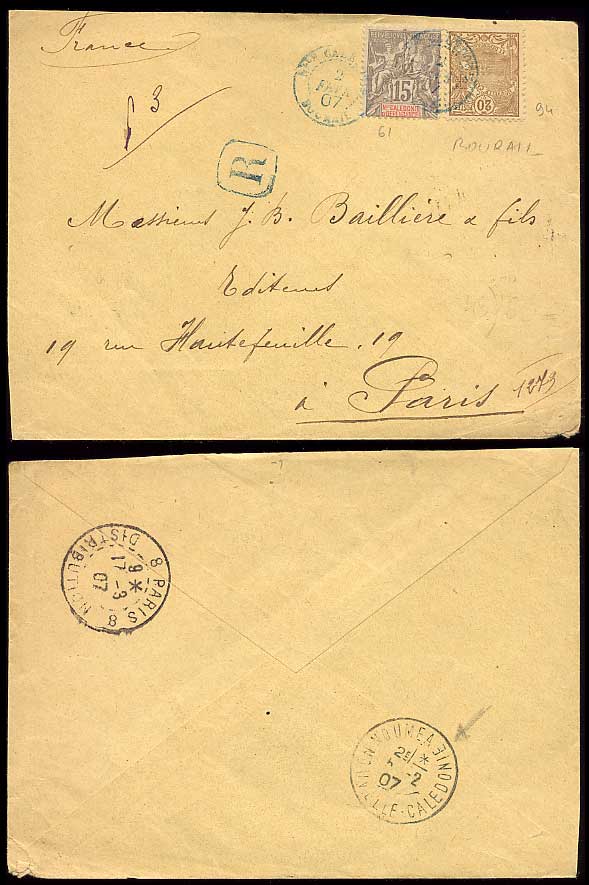 France
3
NLLE CALEDONIE
2
FEVR
07
BOURAIL
15
NLLE CALEDONIE
ET DEPENDANCES
20
61
94
BOURAIL
R
Messieurs J. B. Baillière & fils
Editeurs
19 rue Hautefeuille, 19
à Paris
1273
8 PARIS 8
DISTRIBUTION
9 *
17 - 3
07
NOUMEA
* 
- 2
07
NELLE-CALEDONIE